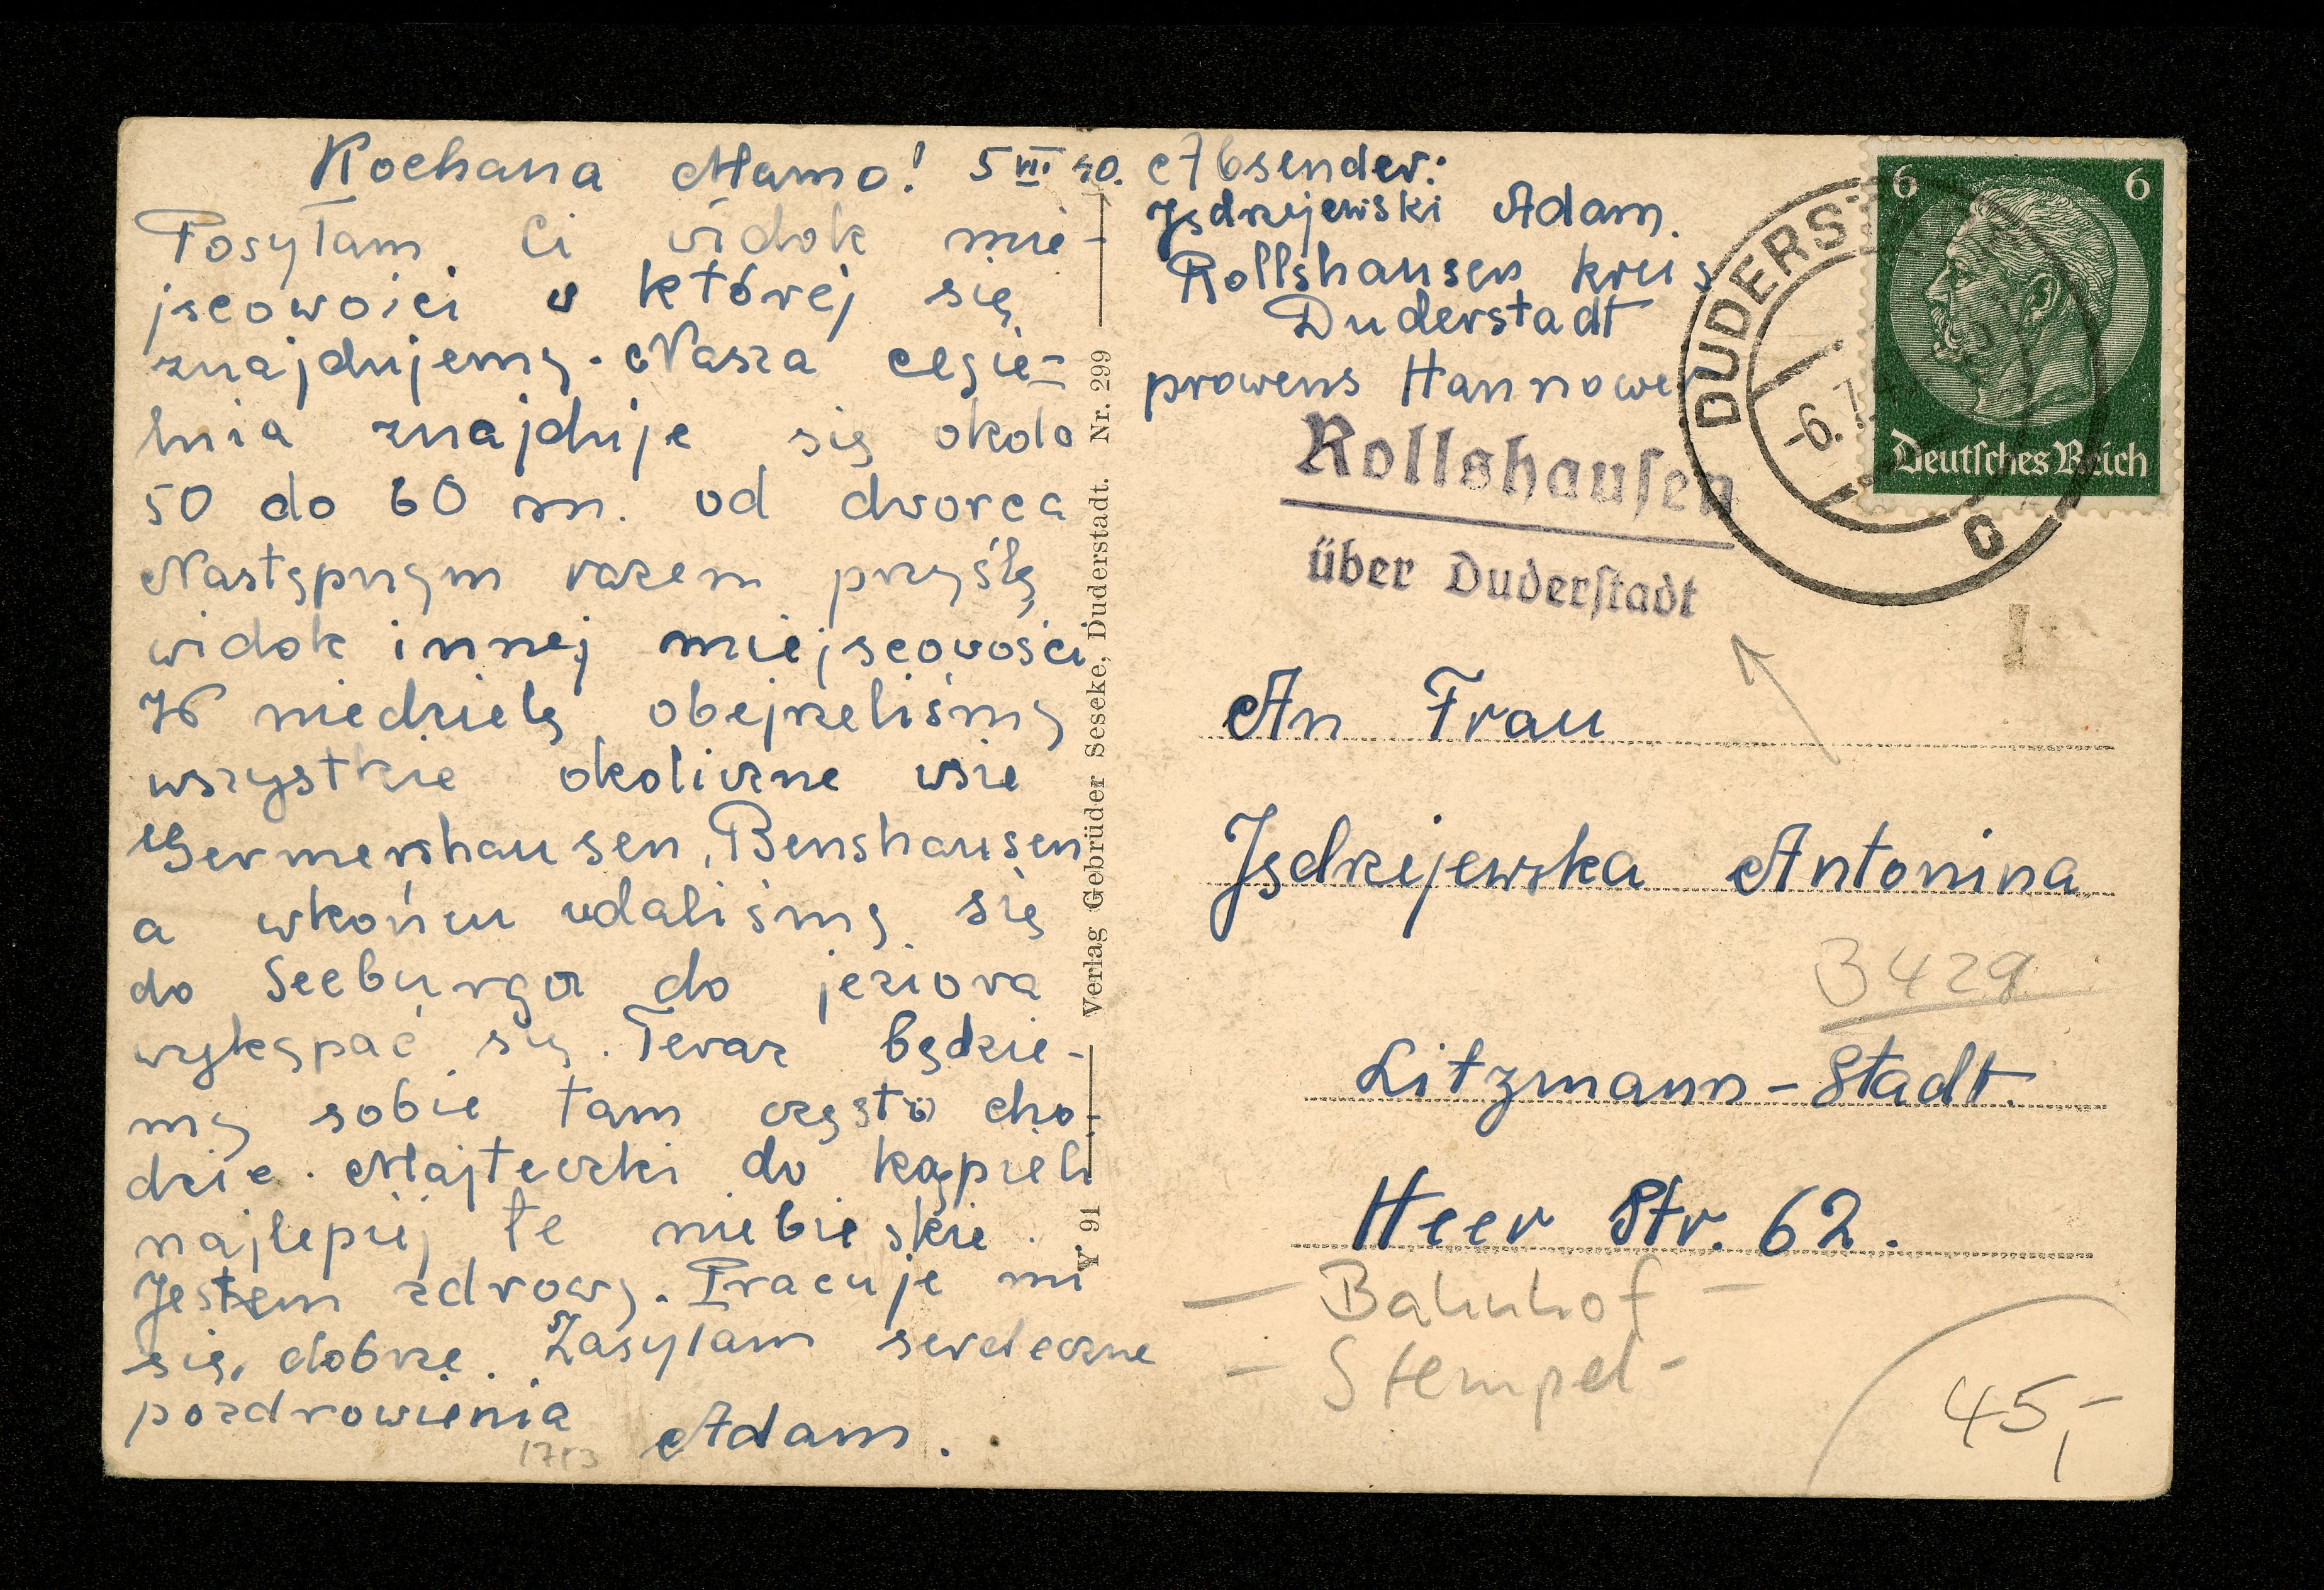 Kochana Mamo! 5 VII 40.
Posyłam Ci widok mie-
jscowości w której się
znajdujemy. Nasza cegie-
lnia znajduje się okolo
50 do 60 m. od dworca
Następnym razem przyślę
widok innej miejscowości
W niedzielę obejrzeliśmy
wszystkie okoliczne wsie
Germershausen, Benshausen
a wkońcu udaliśmy się
do Seeburga do jeziora
wykąpać się. Teraz będzie-
my sobie tam często cho-
dzić. Majteczki do kąpieli
najlepiej te niebieskie.
Jestem zdrowy. Pracuje mi
się, dobrze. Zasyłam serdeczne
pozdrowienia
Adam.
1713
Verlag Gebrüder Seseke, Duderstadt. Nr. 299
Y 91
Absender:
Jędrzejewski Adam.
Rollshausen kreis
Duderstadt
prowens Hannower
Rollshausen
über Duderstadt
DUDERST
-6.7.
c
6 6
Deutsches Reich
An Frau
Jędrzejewska Antonina
3429
Litzmann-Stadt.
Heer Str. 62.
- Bahnhof -
- Stempel -
45,-